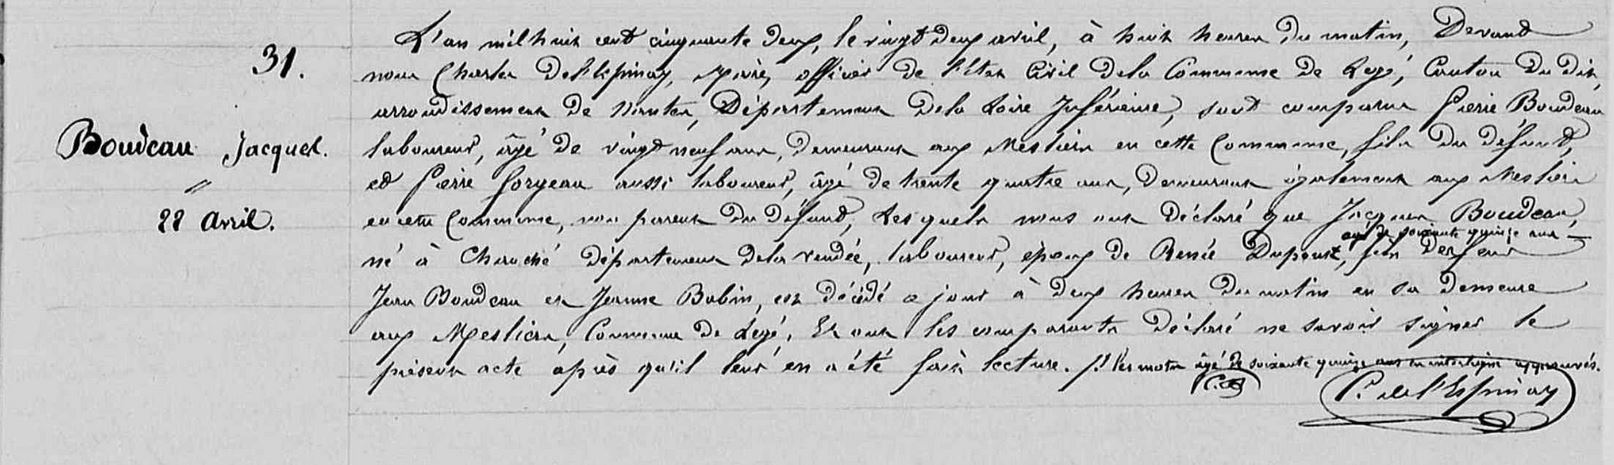 31.
Boudeau Jacques.
22 Avril.
L'an mil huit cent cinquante deux, le vingt deux avril, à huit heures du matin, Devant
nous Charles De l'Espinay, Maire, officier de l'état Civil de la Commune de Legé, Canton du dit,
arrondissement de Nantes, Département de la Loire Inférieure, sont comparus Pierre Boudeau
laboureur, âgé de vingt neuf ans, demeurant aux Mesliers en cette Commune, fils du défunt,
et Pierre Sorgeau aussi laboureur, âgé de trente quatre ans, Demeurant également aux Mesliers
en cette Commune, non parent du défunt, Lesquels nous ont déclaré que Jacques Boudeau,
âgé de soixante quinze ans
né à Chauché département de la Vendée, laboureur, époux de Renée Dupont, fils des feus
Jean Boudeau et Jeanne Bobin, est décédé ce jour à deux heures du matin en sa demeure
aux Mesliers, Commune de Legé. Et ont les comparants déclaré ne savoir signer le
présent acte après qu'il leur en a été fait lecture. les mots âgé de soixante quinze ans en interligne approuvés.
C. de l'Espinay